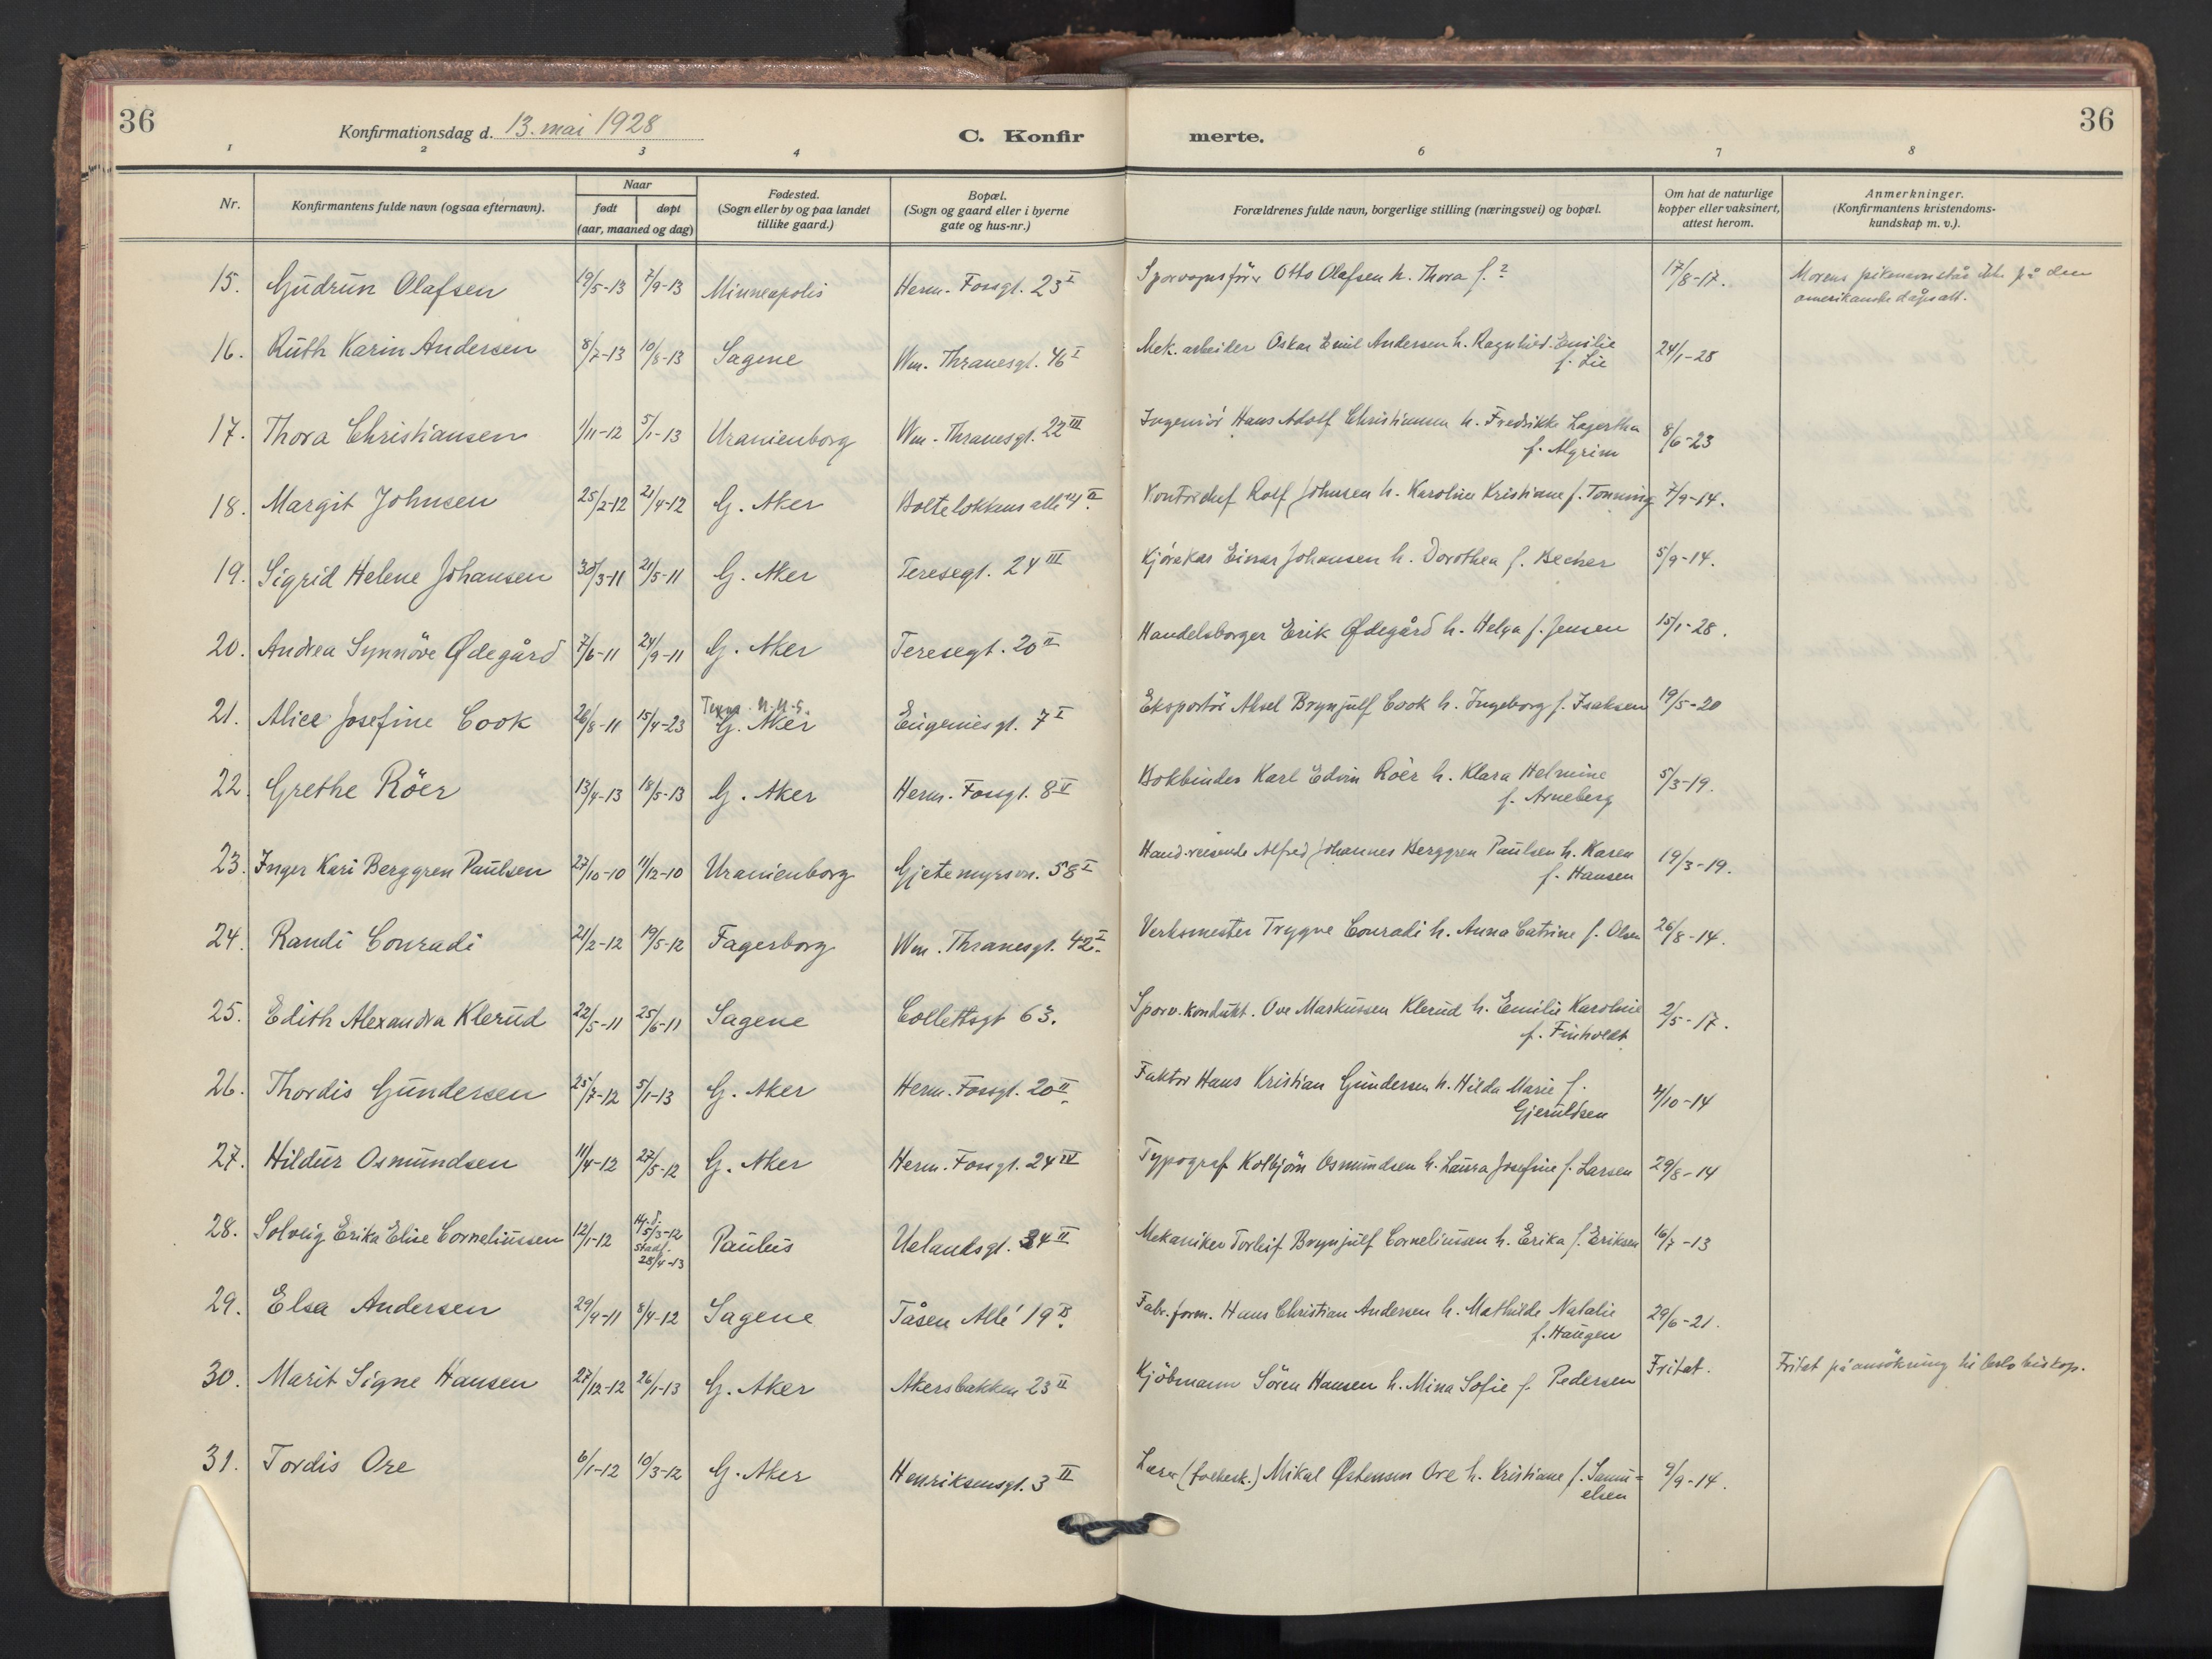 36
Konfirmationsdag d. 13. mai 1928
C. Konfir
merte.
36
1 2 3 4 6 7 8
Nr.
Konfirmantens fulde navn (ogsaa efternavn).
Naar
født døpt
(aar, maaned og dag)
Fødested.
(Sogn eller by og paa landet
tillike gaard.)
Bopæl.
(Sogn og gaard eller i byerne
gate og hus-nr.)
Forældrenes fulde navn, borgerlige stilling (næringsvei) og bopæl.
Om hat de naturlige
kopper eller vaksinert,
attest herom.
Anmerkninger.
(Konfirmantens kristendoms-
kundskap m. v.).
15. Gudrun Olafsen 19/5-13 7/9-13 Minneapolis Herm. Fossgt. 23 I Sporvognsfører Otto Olafsen h. Thora f. ? 17/8-17. Morens pikenavn står ikke på den
amerikanske dåpsatt.
16. Ruth Karin Andersen 8/7-13 10/8-13 Sagene Wm. Thranesgt. 46 I Mek. arbeider Oskar Emil Andersen h. Ragnhild Emilie
f. Lie 24/1-28
17. Thora Christiansen 1/11-12 5/1-13 Uranienborg Wm. Thranesgt. 22 III Ingeniör Hans Adolf Christiansen h. Fredrikke Lagertha
f. Algrim 8/6-23
18. Margit Johnsen 25/2-12 21/4-12 G. Aker Bolteløkkens alle 4 II Kontorchef Rolf Johnsen h. Karoline Kristiane f. Tonning 7/9-14.
19. Sigrid Helene Johansen 30/3-11 21/5-11 G. Aker Teresegt. 24 III Kjørekar Einar Johansen h. Dorothea f. Becher 5/9-14.
20. Andrea Synnöve Ødegård 7/6-11 24/9-11 G. Aker Teresegt. 20 II Handelsborger Erik Ødegård h. Helga f. Jensen 15/1-28.
21. Alice Josefine Cook 26/8-11 15/4-23 Texas U.S.
G. Aker Eugeniesgt. 7 I Eksportör Aksel Brynjulf Cook h. Ingeborg f. Isaksen 19/5-20
22. Grethe Röer 13/4-13 18/5-13 G. Aker Herm. Fossgt. 8 II Bokbinder Karl Edvin Röer h. Klara Helmine
f. Arneberg 5/3-19.
23. Inger Kari Berggren Paulsen 27/10-10 11/12-10 Uranienborg Gjetemyrsvn. 58 I Hand.reisende Alfred Johannes Berggren Paulsen h. Karen
f. Hansen 19/3-19.
24. Randi Conradi 21/2-12 19/5-12 Fagerborg Wm. Thranesgt. 42 I Verksmester Trygve Conradi h. Anna Catrine f. Olsen 26/8-14.
25. Edith Alexandra Klerud 22/5-11 25/6-11 Sagene Collettsgt 63. Sporv. kondukt. Ove Markussen Klerud h. Emilie Karoline
f. Finholdt 2/5-17.
26. Thordis Gundersen 25/7-12 5/1-13 G. Aker Herm. Fossgt. 20 II Faktor Hans Kristian Gundersen h. Hilda Marie f.
Gjeruldsen 4/10-14
27. Hildur Osmundsen 11/4-12 27/5-12 G. Aker Herm. Fossgt. 24 IV Typograf Kolbjörn Osmundsen h. Laura Josefine f. Larsen 29/8-14
28. Solveig Erika Elise Corneliussen 12/1-12 Hj.d.
15/3-12
stadf.
28/4-13 Paulus Uelandsgt. 34 II Mekaniker Torleif Brynjulf Corneliussen h. Erika f. Eriksen 16/7-13
29. Elsa Andersen 29/9-11 8/4-12 Sagene Tåsen Allé 19 Fabr.form. Hans Christian Andersen h. Mathilde Natalie
f. Haugen 29/6-21.
30. Marit Signe Hansen 27/12-12 26/1-13 G. Aker Akersbakken 23 II Kjöbmann Sören Hansen h. Mina Sofie f. Pedersen Fritat. Fritat på ansökning til Oslo biskop.
31. Tordis Ore 6/1-12 10/3-12 G. Aker Henriksensgt. 3 II Lærer (folkesk.) Mikal Østensen Ore h. Kristiane f. Samu=
elsen 9/9-14.